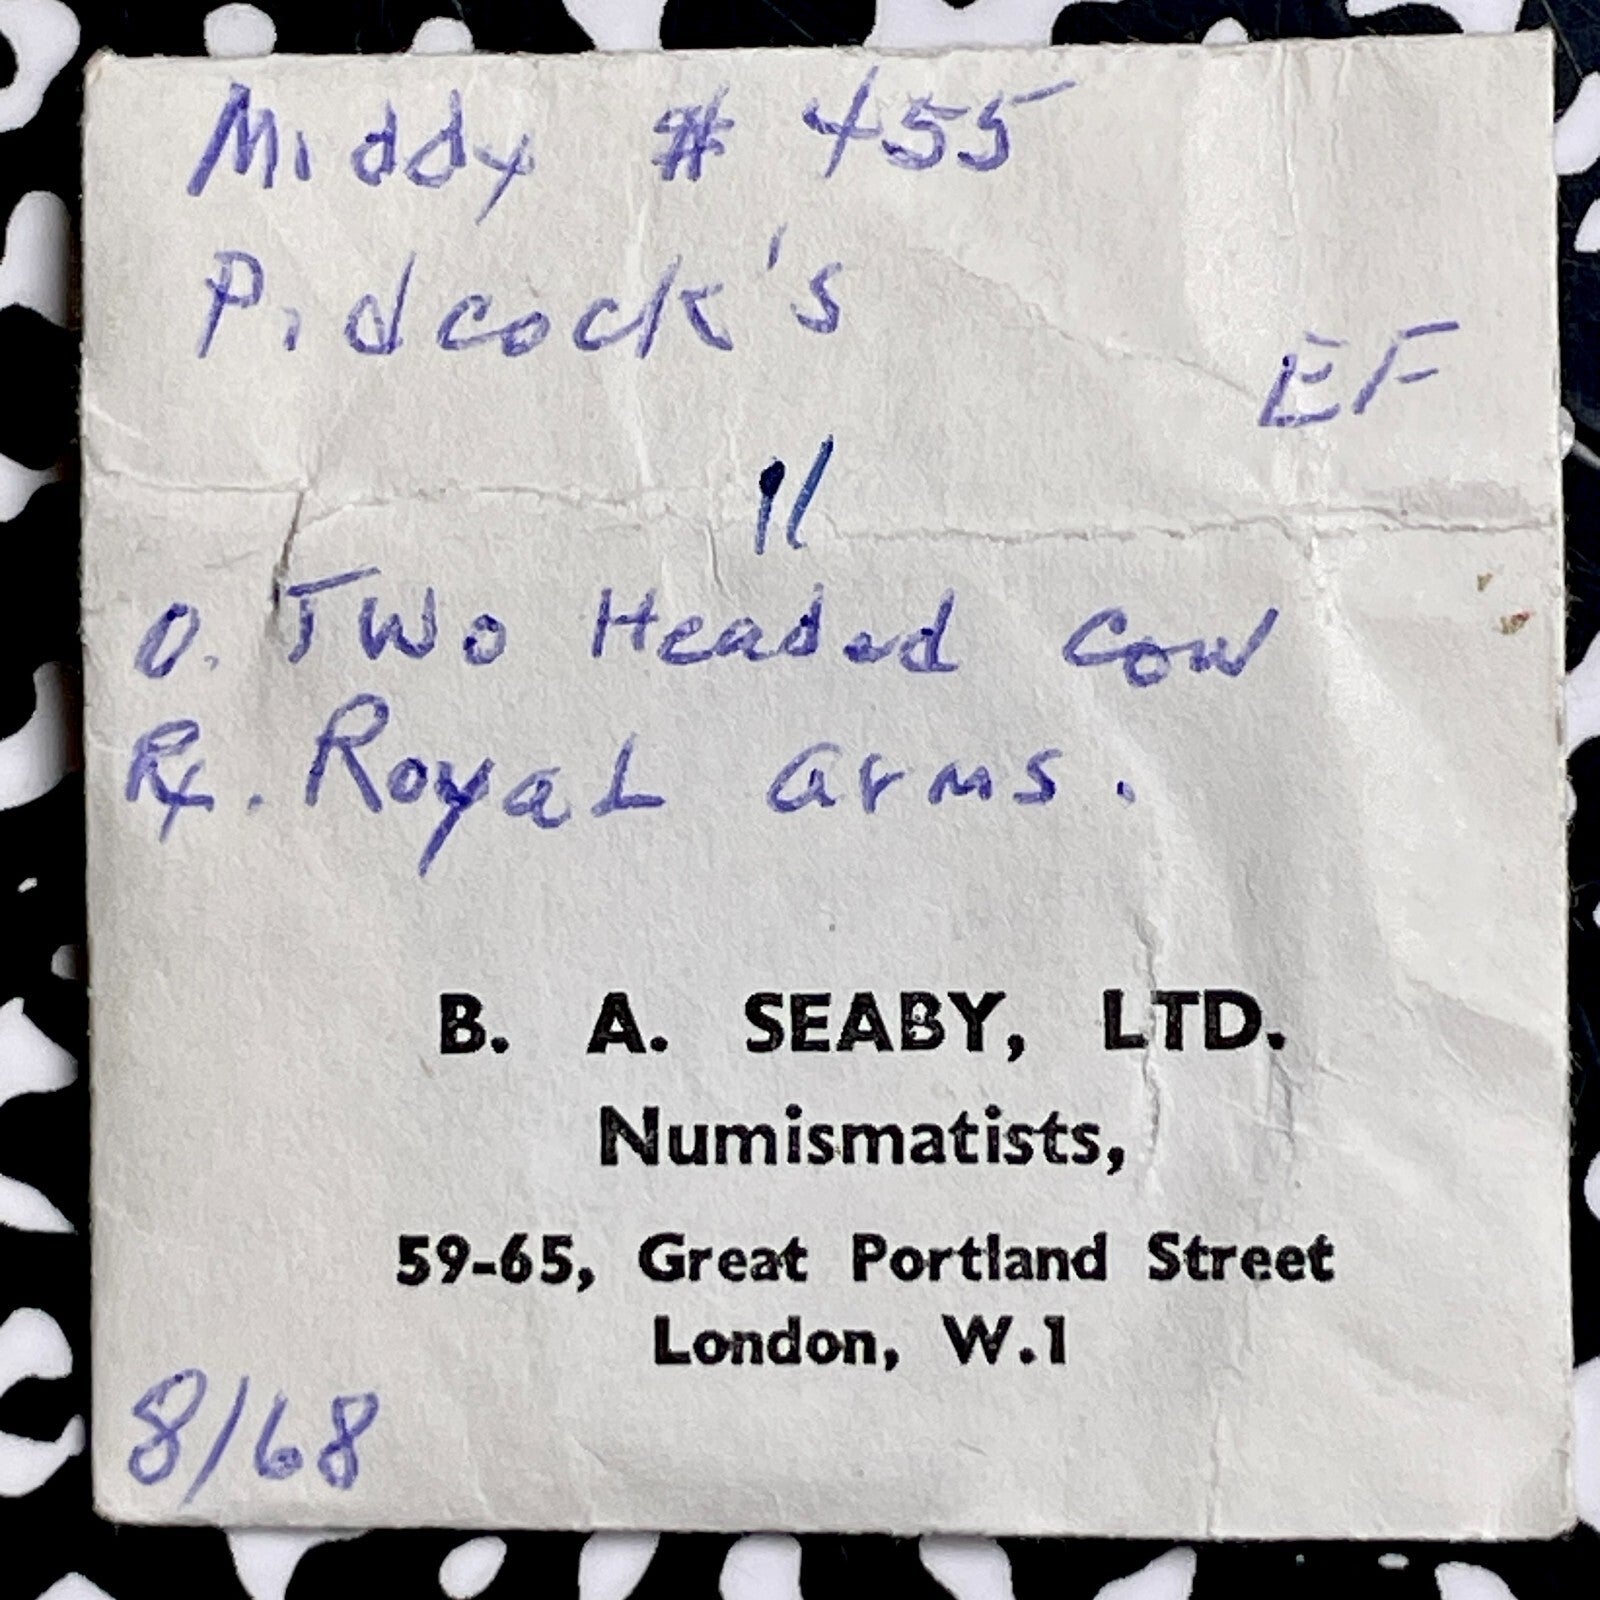 Middy # 455
Pidcock's
EF
1/
O. Two Headed Cow
Rx. Royal arms.
B. A. SEABY, LTD.
Numismatists,
59-65, Great Portland Street
London, W.1
8/68